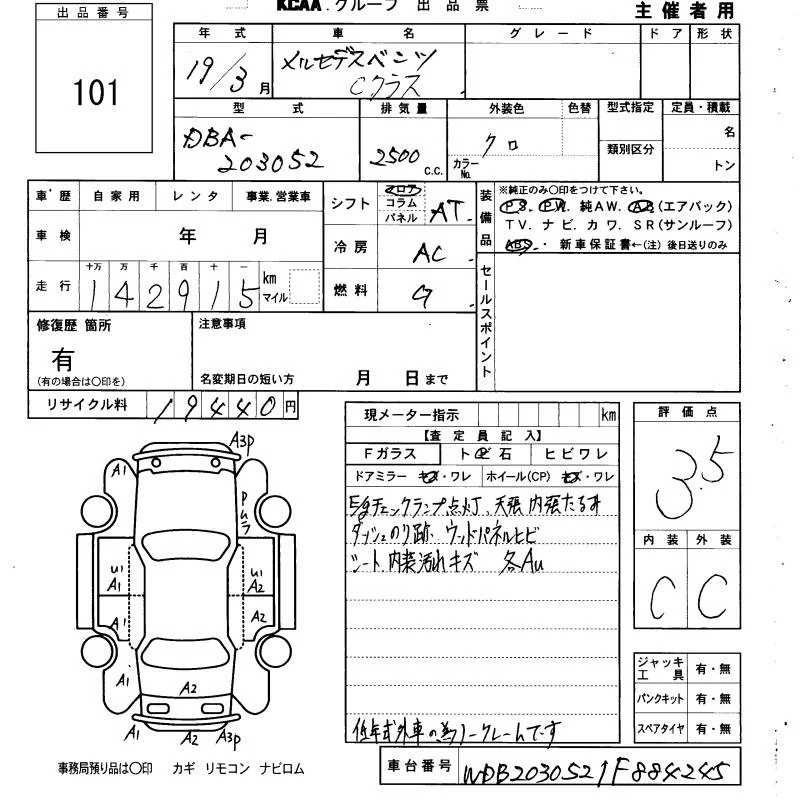 KCAA.グループ 出品票
主催者用
出品番号
101
年式 車名 グレード ドア 形状
19/3月 メルセデスベンツ
Cクラス
型式 排気量 外装色 色替 型式指定 定員・積載
DBA-
203052
2500 c.c.
クロ
カラーNo.
類別区分
名
トン
車歴 自家用 レンタ 事業.営業車
車検 年 月
走行 十万 万 千 百 十 一
142915 km マイル
シフト フロア コラム パネル AT
冷房 AC
燃料 G
装備品
※純正のみ〇印をつけて下さい。
P.S. P.W. 純AW. AB.(エアバック)
TV. ナビ. カワ. SR(サンルーフ)
ABS.・新車保証書←(注)後日送りのみ
セールスポイント
修復歴 箇所
有
(有の場合は〇印を)
注意事項
名変期日の短い方 月 日まで
リサイクル料 19440円
現メーター指示 km
【査定員記入】
Fガラス ト飛石 ヒビワレ
ドアミラー キズ・ワレ ホイール(CP) キズ・ワレ
Egチェックランプ点灯、天張 内張たるみ
ダッシュのり跡、ウッドパネルヒビ
シート、内装汚れキズ 各AU
低年式外車の為ノークレームです
評価点
3.5
内装 外装
C C
ジャッキ工具 有・無
パンクキット 有・無
スペアタイヤ 有・無
A3P
A1
Pムラ
U1
A1
U1
A2
A1
A2
A1
A2
A1
A2
A3P
事務局預り品は〇印 カギ リモコン ナビロム
車台番号 WDB2030521F884245